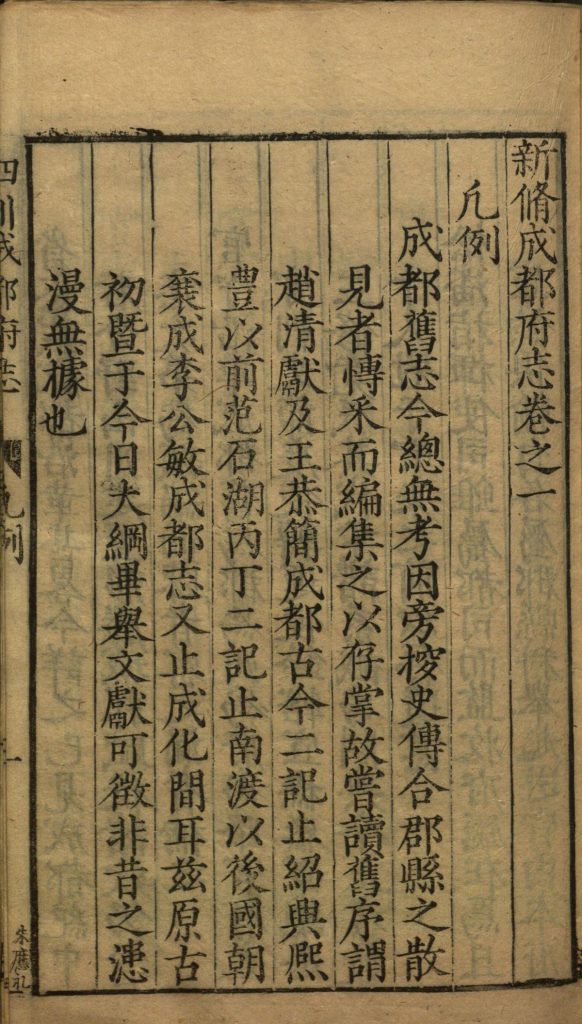 新脩成都府志卷之一
凡例
成都舊志今總無考因旁搜史傳合郡縣之散
見者慱釆而編集之以存掌故嘗讀舊序謂
趙清獻及王恭簡成都古今二記止紹興熈
豊以前范石湖丙丁二記止南渡以後國朝
襄成李公敏成都志又止成化間耳兹原古
初暨于今日大綱畢舉文獻可徵非昔之漶
漫無據也
四川成都府志
凡例
一